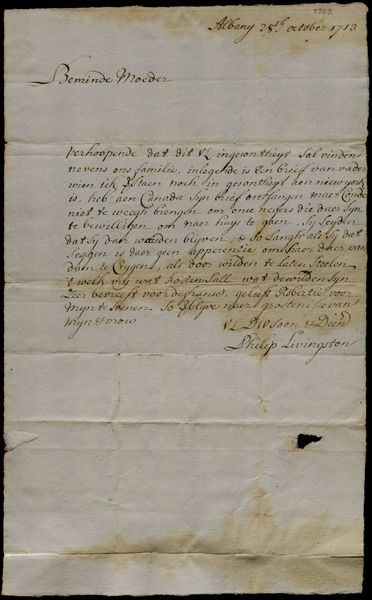 Albany 28th october 1713
Beminde Moeder
Verhoopende dat dit UL in gesontheyt Sal vinden
nevens ons familie, inlegende is Een brief van vader
wien ick Staen noch in gesontheyt aen niew york
is. heb aen Canada Syn brief ontfangen maer Conde
niet te weegh brengen om onse negers die daer Syn
te bewilligen om naer huys te gaen, Sy Seyden
dat Sy daer wouden blyven, & So Langh als Sy dat
Seggen is daer geen apperencie om haer daer van
daen te Crygen, als door wilden te Laten Steelen
't welk my wat kosten Sall wat de wilden Syn
Seer bevreest voor de franse, gelieft Robertie voor
myn te Soenen. So blyve naer groetenisse van
myn vrow
UL DW Soon & Dien
Philip Livingston